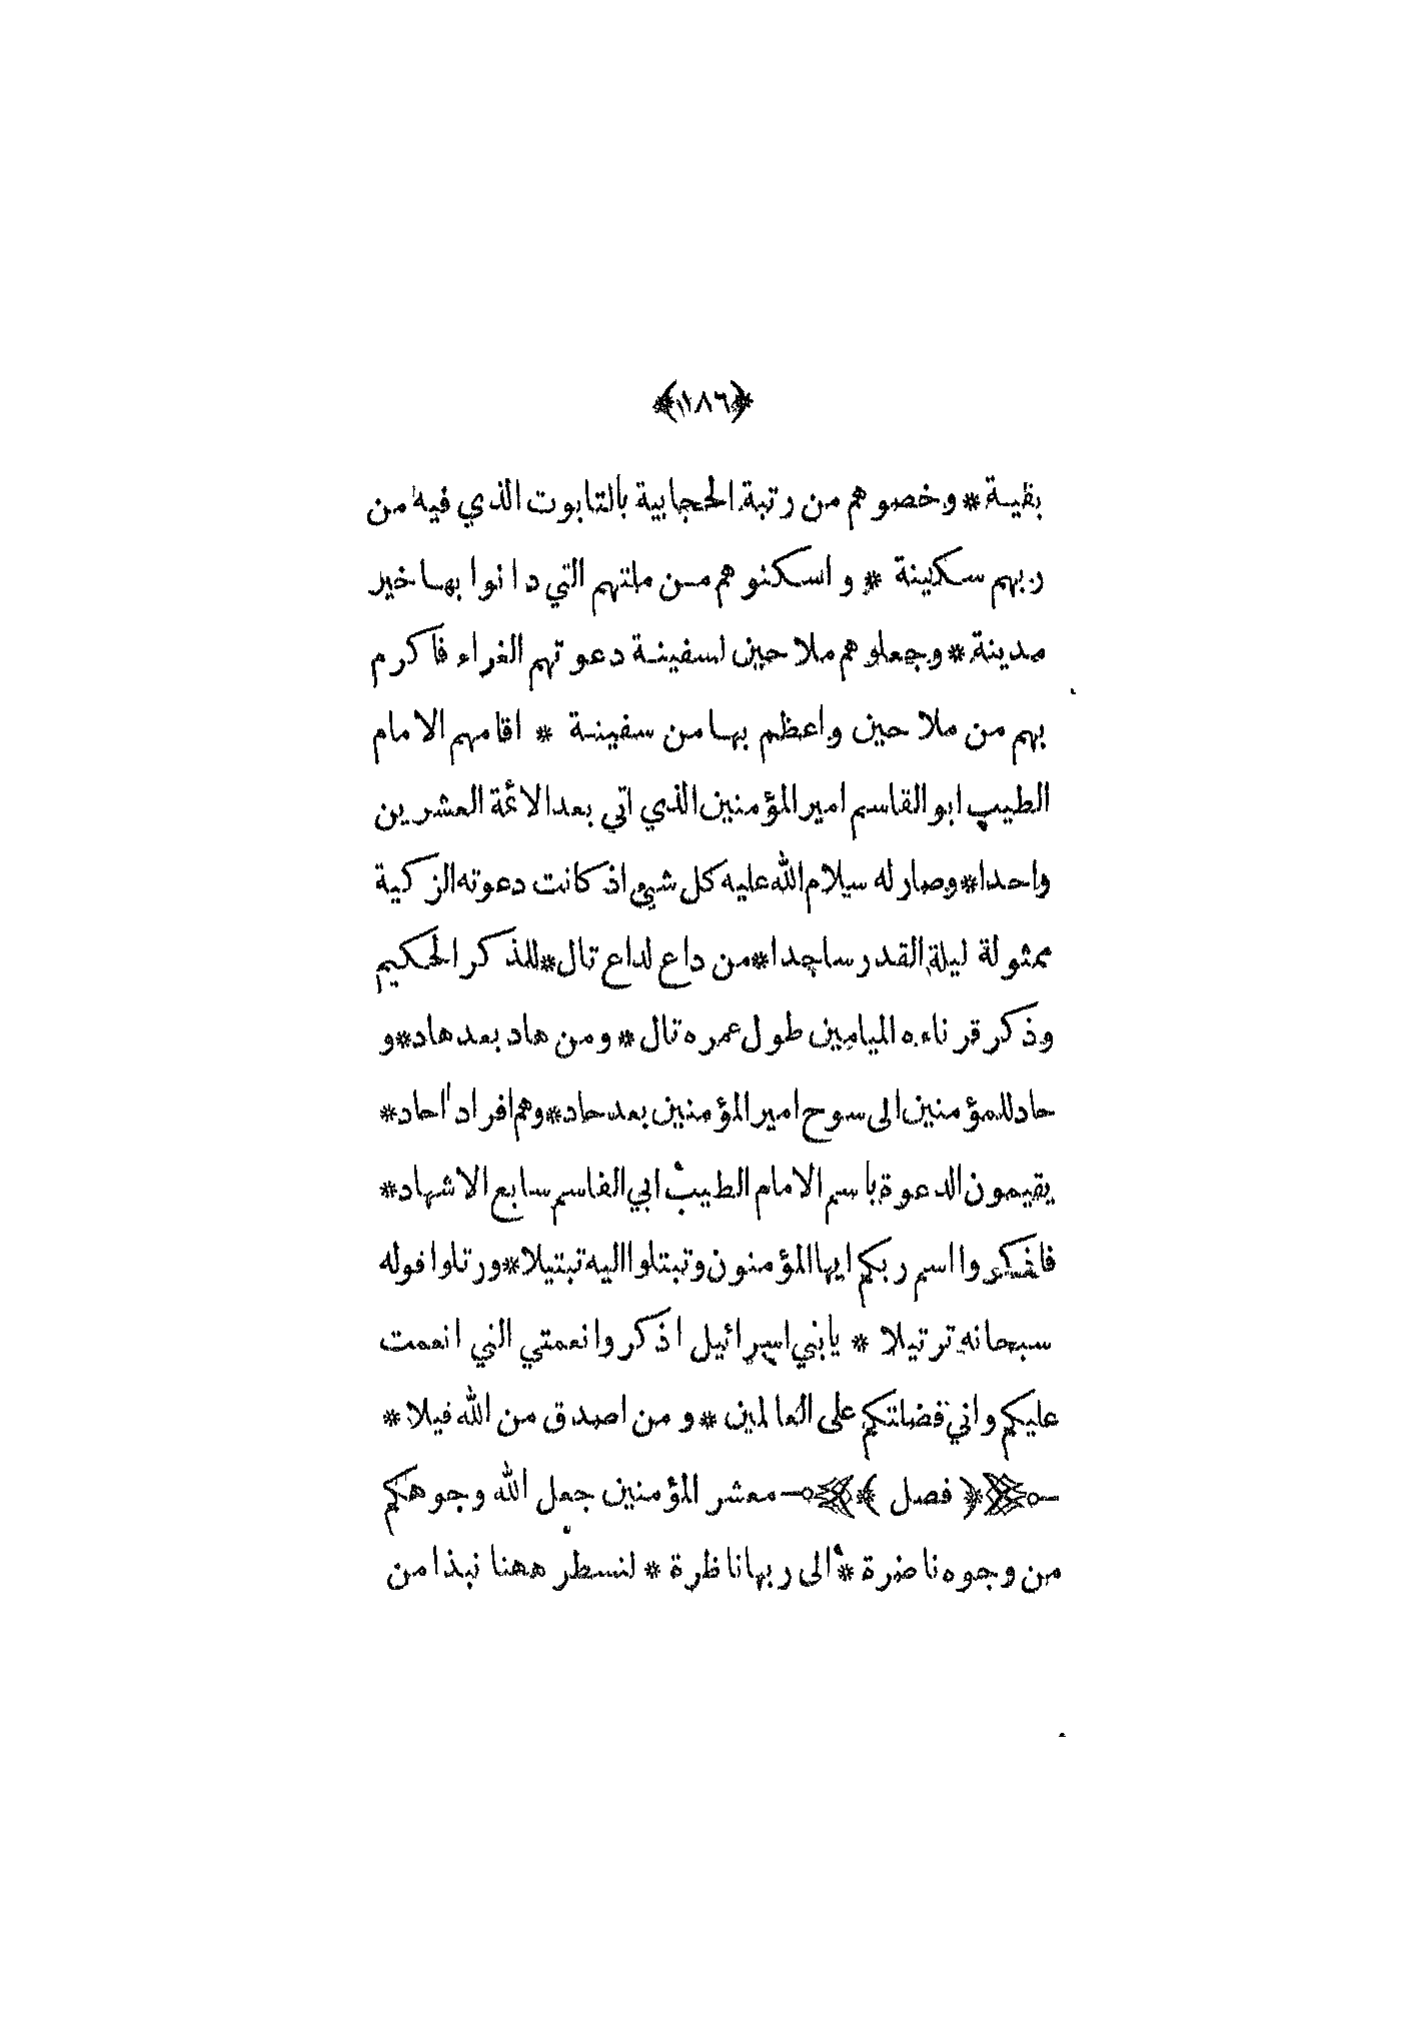 ﴿١٨٦﴾
بقية * وخصوهم من رتبة الحجابية بالتابوت الذي فيه من
ربهم سكينة * واسكنوهم من ملتهم التي دانوا بها خير
مدينة * وجعلوهم ملاحين لسفينة دعوتهم الغراء فاكرم
بهم من ملاحين واعظم بها من سفينة * اقامهم الامام
الطيب ابو القاسم امير المؤمنين الذي اتى بعد الائمة العشرين
واحدا * وصار له سلام الله عليه كل شيئ اذ كانت دعوته الزكية
ممثولة ليلة القدر ساجدا * من داع لداع تال * للذكر الحكيم
وذكر قرناءه الميامين طول عمره تال * ومن هاد بعد هاد * و
حاد للمؤمنين الى سوح امير المؤمنين بعد حاد * وهم افراد احاد *
يقيمون الدعوة باسم الامام الطيب ابي القاسم سابع الاشهاد *
فاذكروا اسم ربكم ايها المؤمنون وتبتلوا اليه تبتيلا * ورتلوا قوله
سبحانه ترتيلا * يابني اسرائيل اذكروا نعمتي التي انعمت
عليكم واني فضلتكم على العالمين * ومن اصدق من الله قيلا *
﴿ فصل ﴾ معشر المؤمنين جعل الله وجوهكم
من وجوه ناضرة * الى ربها ناظرة * لنسطر ههنا نبذا من